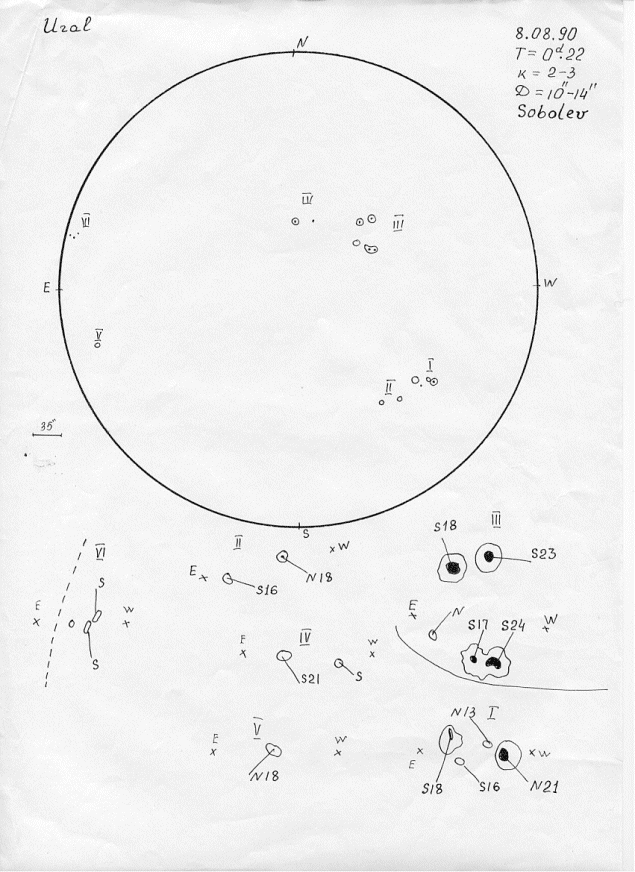 Ural
8.08.90
T = 0ᵈ.22
K = 2-3
D = 10"-14"
Sobolev
N
IV
III
VI
E
W
V
I
II
35"
S
VI
S
E
W
S
II
W
E
S16
N18
IV
E
W
S21
S
V
E
W
N18
III
S18
S23
E
N
W
S17
S24
N13
I
E
W
S18
S16
N21